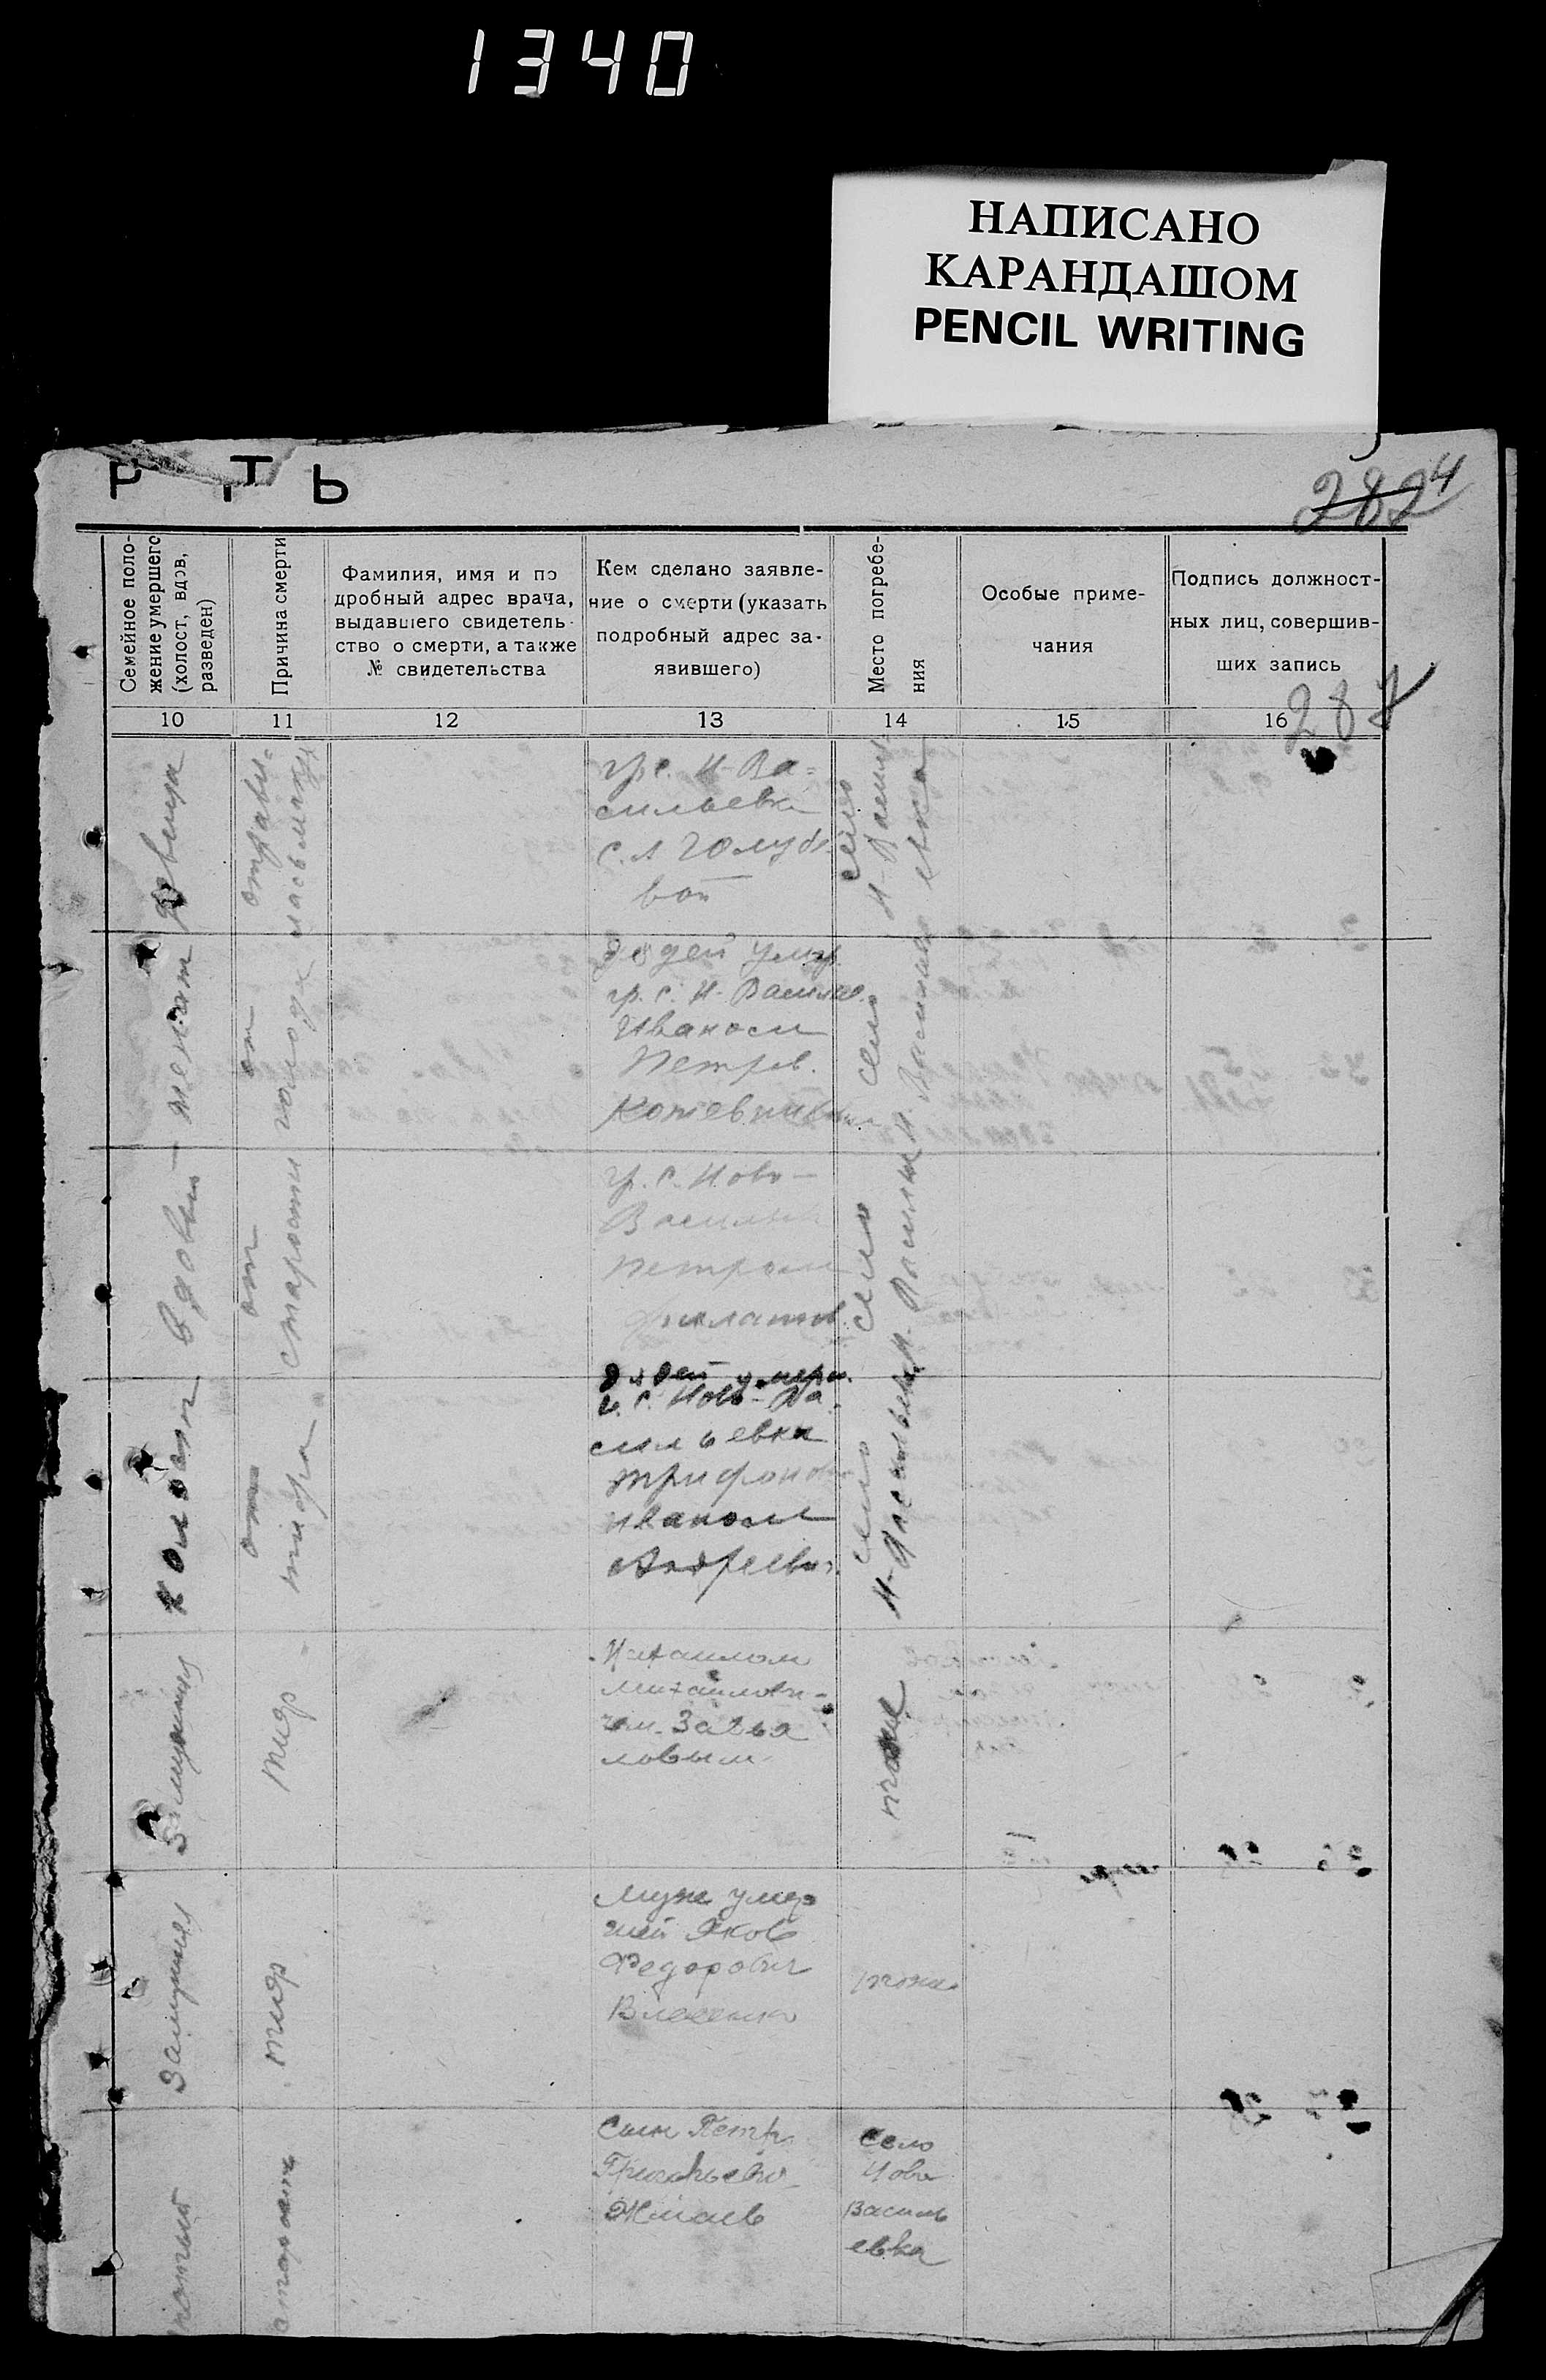 1340
НАПИСАНО
КАРАНДАШОМ
PENCIL WRITING
Р Т Ь
282 4
Семейное поло-
жение умершего
(холост, вдов,
разведен)
Причина смерти
Фамилия, имя и по
дробный адрес врача,
выдавшего свидетель-
ство о смерти, а также
№ свидетельства
Кем сделано заявле-
ние о смерти (указать
подробный адрес за-
явившего)
Место погребе-
ния
Особые приме-
чания
Подпись должност-
ных лиц, совершив-
ших запись
10 11 12 13 14 15 16
287
девица
отрави-
лась
гр. с. Н-Ва=
сильевка
С. А Голуб
вой
село
Н-Василь
евка
женат
от
голода
дядей умер.
гр. с. Н-Василье.
Иваном
Петров.
село
Н. Василь
вдовый
от
старости
гр. с. Ново-
Василь
Петром
Филатов.
село
Н-Василь
холост
от
тифа
дядей умерш.
с. Ново-Ва-
сильевка
Трифонов
Иваном
Андреевич.
село
Н-Василь
замужняя
тиф
Михаилом
Михайлови-
чем
ловым
тоже
Замужняя
тиф
Муж умер
шей Яков
Федорович
Власенко
тоже
старость
Сын Петр
Григорьевич
село
Ново
Василь
евка